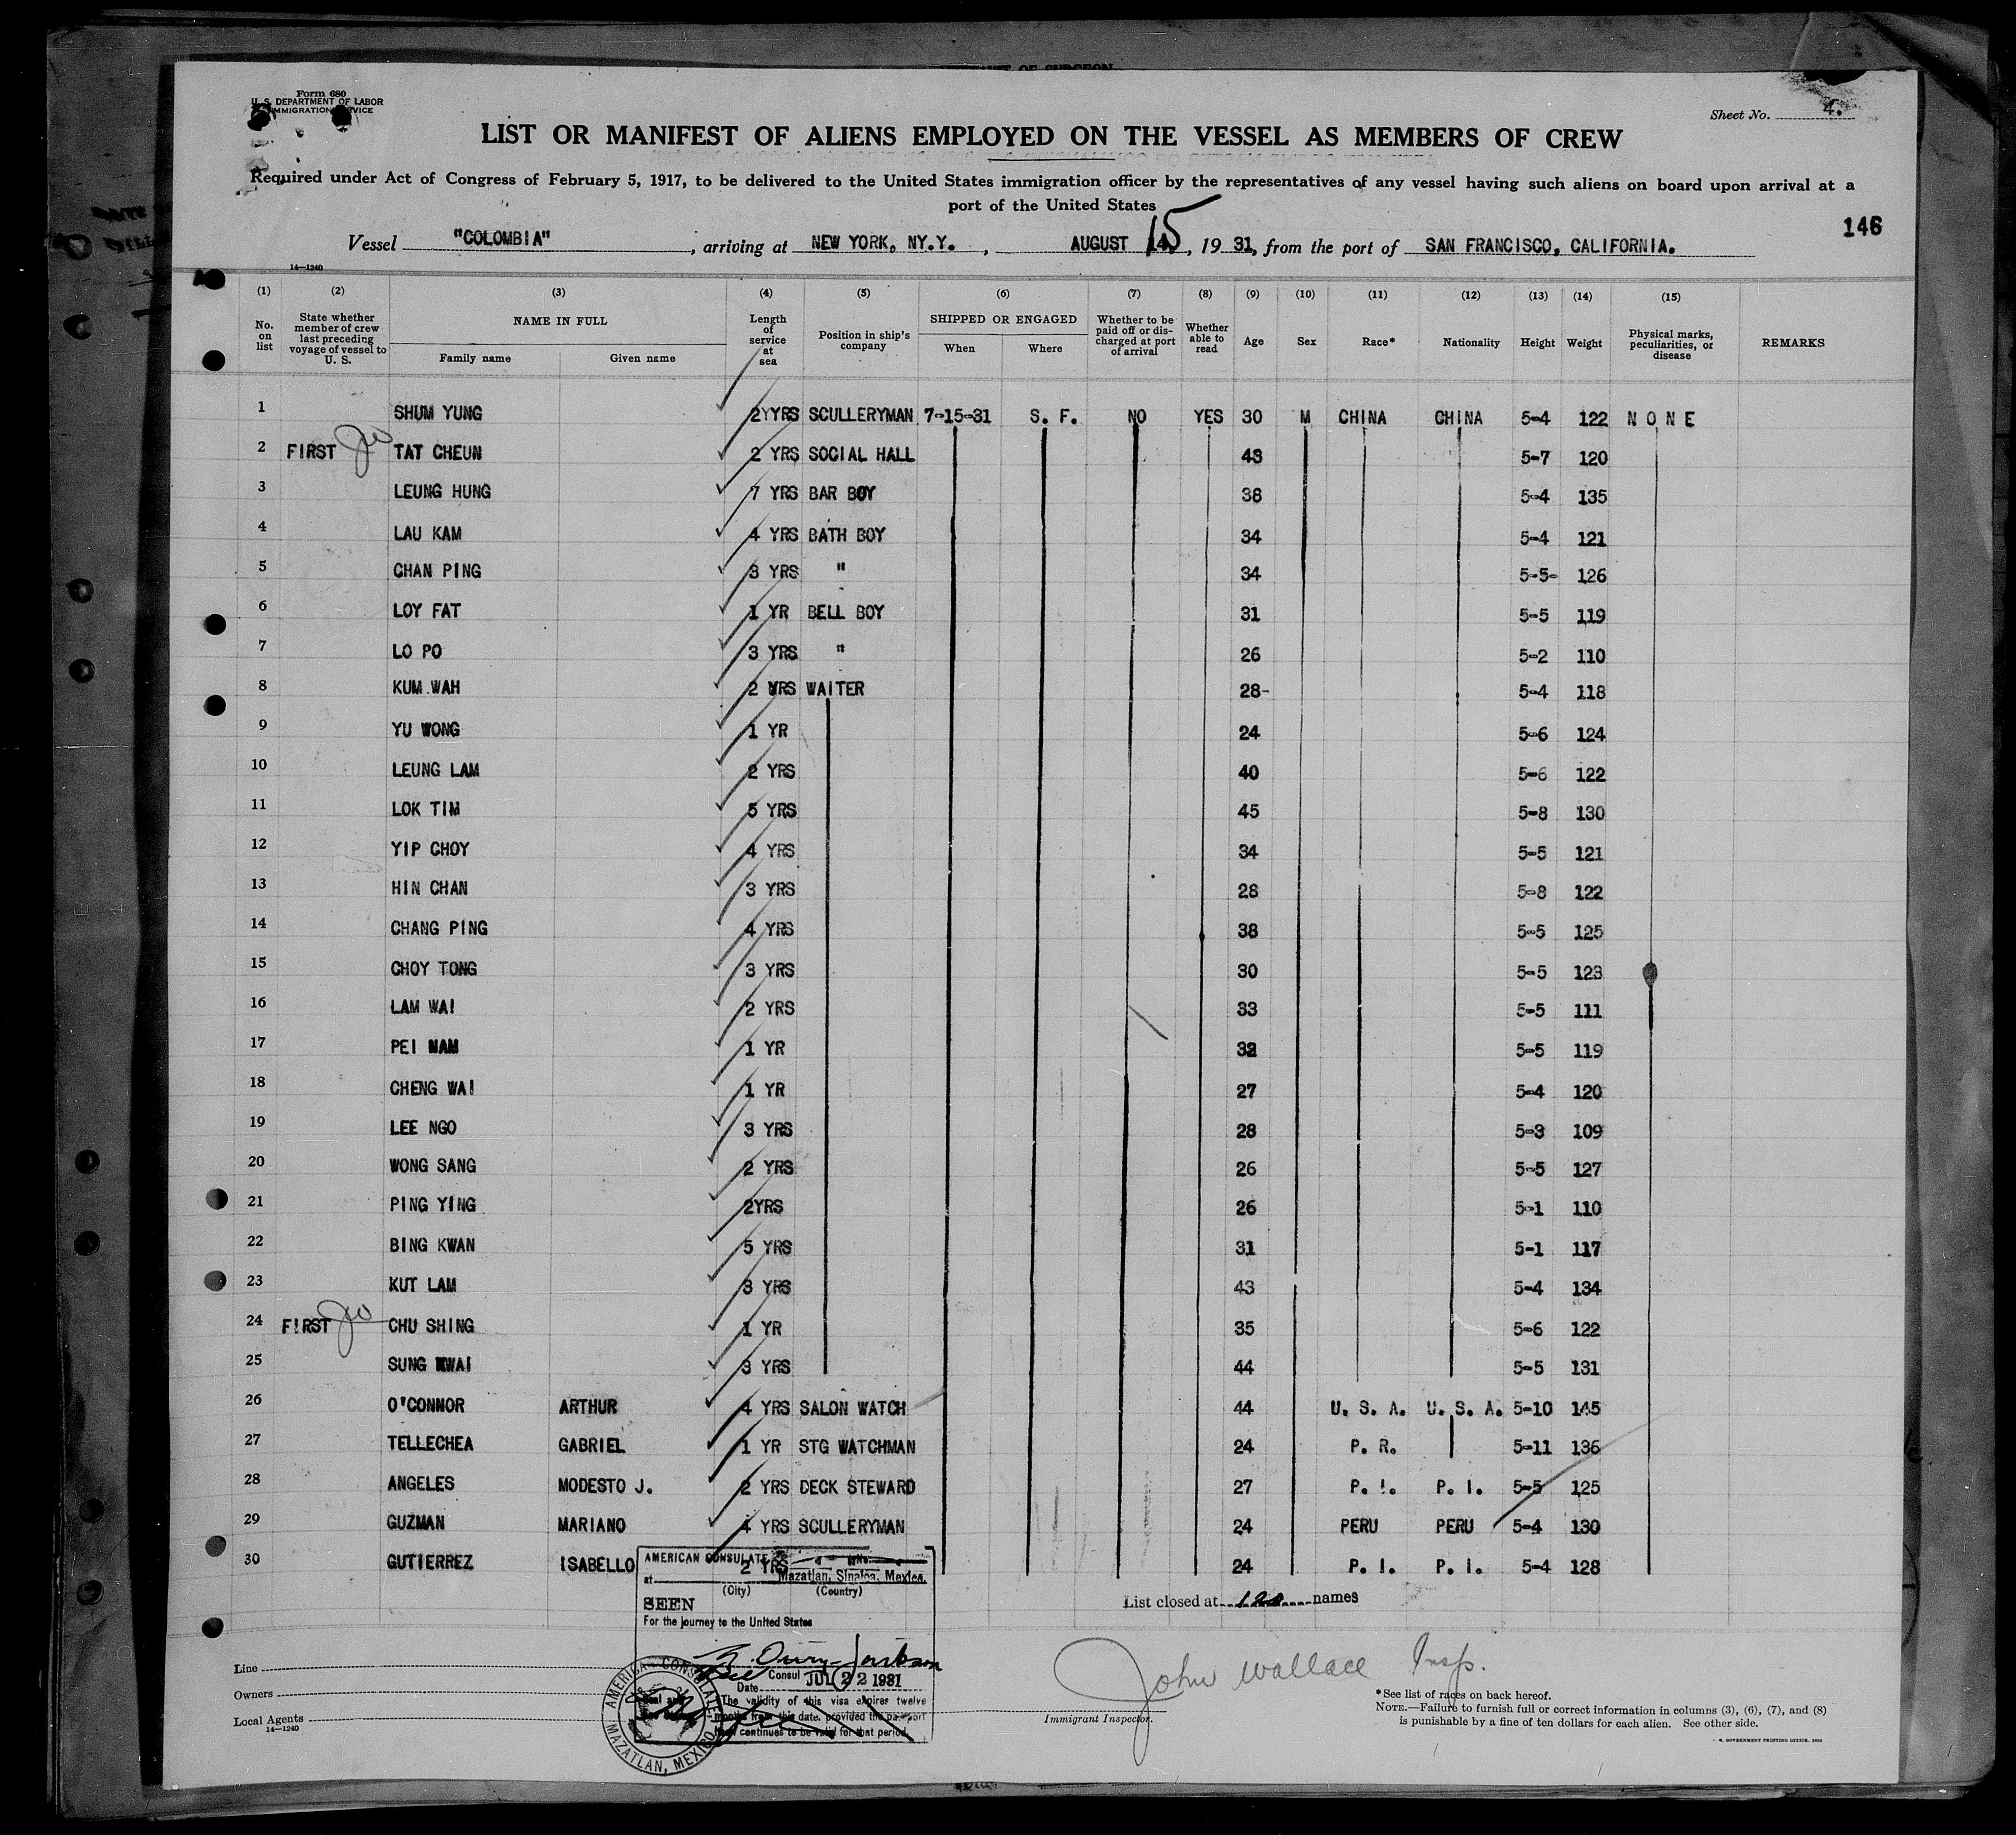 Form 680
U. S. DEPARTMENT OF LABOR
IMMIGRATION SERVICE
Sheet No. 4.
LIST OR MANIFEST OF ALIENS EMPLOYED ON THE VESSEL AS MEMBERS OF CREW
Required under Act of Congress of February 5, 1917, to be delivered to the United States immigration officer by the representatives of any vessel having such aliens on board upon arrival at a
port of the United States
146
Vessel "COLOMBIA", arriving at NEW YORK, NY.Y., AUGUST 15, 1931, from the port of SAN FRANCISCO, CALIFORNIA.
14—1240
(1) (2) (3) (4) (5) (6) (7) (8) (9) (10) (11) (12) (13) (14) (15)
No. on list State whether member of crew last preceding voyage of vessel to U. S. NAME IN FULL Family name Given name Length of service at sea Position in ship's company SHIPPED OR ENGAGED When Where Whether to be paid off or discharged at port of arrival Whether able to read Age Sex Race* Nationality Height Weight Physical marks, peculiarities, or disease REMARKS
1 SHUM YUNG 2YYRS SCULLERYMAN 7-15-31 S. F. NO YES 30 M CHINA CHINA 5-4 122 N O N E
2 FIRST TAT CHEUN 2 YRS SOCIAL HALL 43 5-7 120
3 LEUNG HUNG 7 YRS BAR BOY 38 5-4 135
4 LAU KAM 4 YRS BATH BOY 34 5-4 121
5 CHAN PING 3 YRS " 34 5-5- 126
6 LOY FAT 1 YR BELL BOY 31 5-5 119
7 LO PO 3 YRS " 26 5-2 110
8 KUM WAH 2 YRS WAITER 28- 5-4 118
9 YU WONG 1 YR 24 5-6 124
10 LEUNG LAM 2 YRS 40 5-6 122
11 LOK TIM 5 YRS 45 5-8 130
12 YIP CHOY 4 YRS 34 5-5 121
13 HIN CHAN 3 YRS 28 5-8 122
14 CHANG PING 4 YRS 38 5-5 125
15 CHOY TONG 3 YRS 30 5-5 123
16 LAM WAI 2 YRS 33 5-5 111
17 PEI MAM 1 YR 32 5-5 119
18 CHENG WAI 1 YR 27 5-4 120
19 LEE NGO 3 YRS 28 5-3 109
20 WONG SANG 2 YRS 26 5-5 127
21 PING YING 2YRS 26 5-1 110
22 BING KWAN 5 YRS 31 5-1 117
23 KUT LAM 3 YRS 43 5-4 134
24 FIRST CHU SHING 1 YR 35 5-6 122
25 SUNG KWAI 3 YRS 44 5-5 131
26 O'CONNOR ARTHUR 4 YRS SALON WATCH 44 U. S. A. U. S. A. 5-10 145
27 TELLECHEA GABRIEL 1 YR STG WATCHMAN 24 P. R. 5-11 136
28 ANGELES MODESTO J. 2 YRS DECK STEWARD 27 P. I. P. I. 5-5 125
29 GUZMAN MARIANO 4 YRS SCULLERYMAN 24 PERU PERU 5-4 130
30 GUTIERREZ ISABELLO 2 YRS 24 P. I. P. I. 5-4 128
AMERICAN CONSULATE
at Mazatlan, Sinaloa, Mexico.
(City) (Country)
SEEN
For the journey to the United States
Consul
Date JUL 22 1931
The validity of this visa expires twelve
months from this date, provided the passport
continues to be valid for that period.
AMERICAN CONSULATE
MAZATLAN, MEXICO
List closed at 120 names
Line
Owners
Local Agents
14—1240
John Wallace Insp.
Immigrant Inspector.
*See list of races on back hereof.
NOTE.—Failure to furnish full or correct information in columns (3), (6), (7), and (8)
is punishable by a fine of ten dollars for each alien. See other side.
GOVERNMENT PRINTING OFFICE